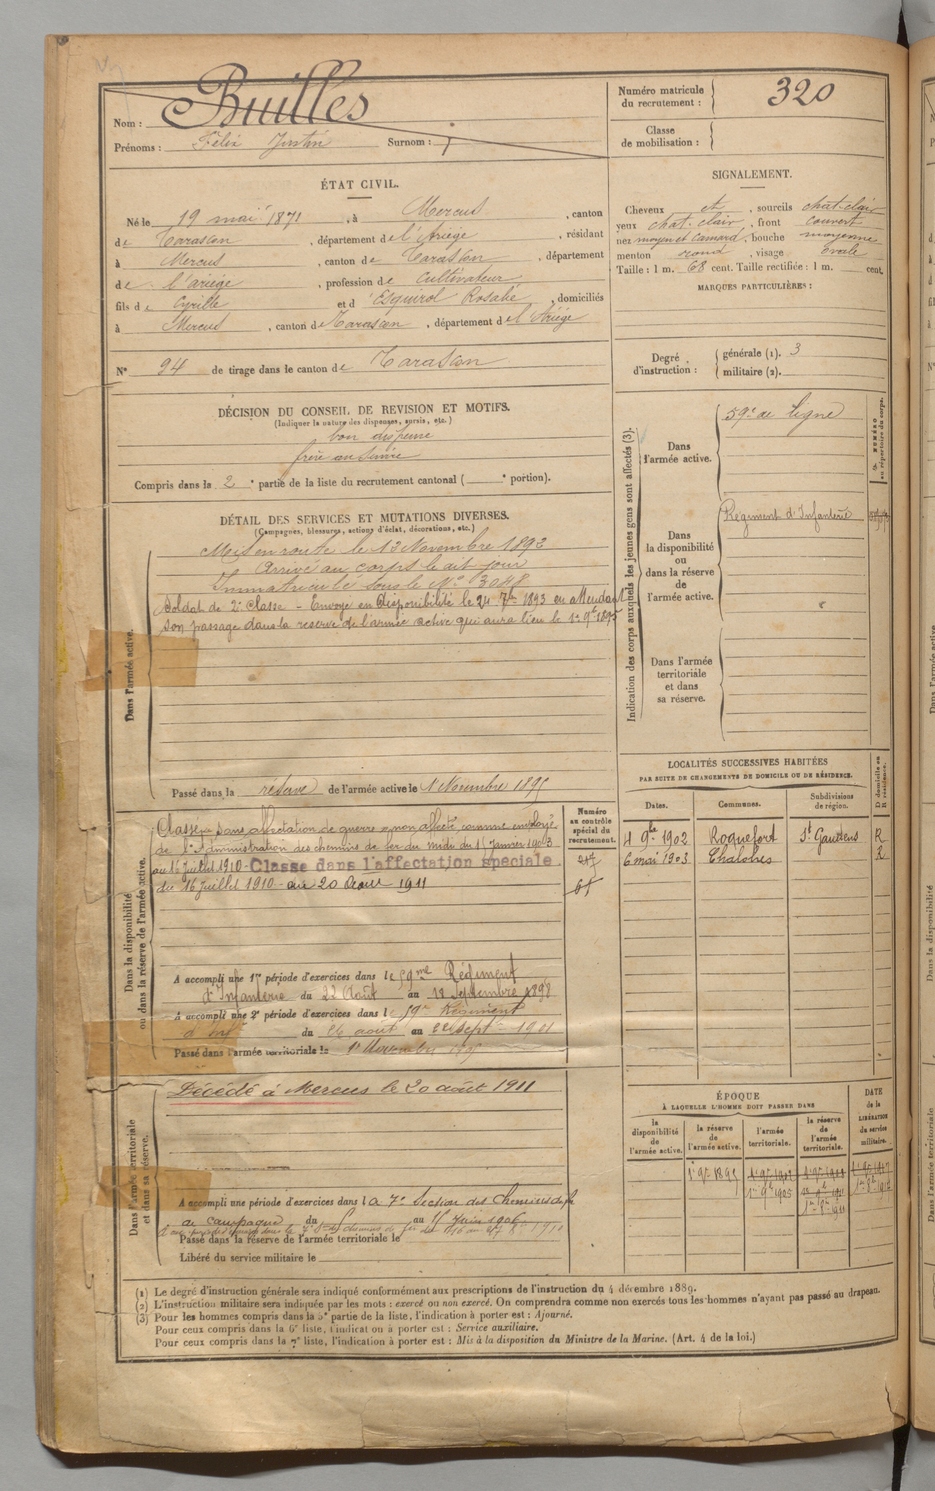 Nom : Builles
Prénoms : Félix Justin Surnom :
ÉTAT CIVIL.
Né le 19 mai 1871, à Mercus, canton
de Tarascon, département de l'Ariège, résidant
à Mercus, canton de Tarascon, département
de l'ariège, profession de Cultivateur
fils de Cyrille et d'Esquirol Rosalie, domiciliés
à Mercus, canton de Tarascon, département de l'Ariège
N° 94 de tirage dans le canton de Tarascon
DÉCISION DU CONSEIL DE REVISION ET MOTIFS.
(Indiquer la nature des dispenses, sursis, etc.)
bon dispensé
frère au service
Compris dans la 2e partie de la liste du recrutement cantonal ( e portion).
DÉTAIL DES SERVICES ET MUTATIONS DIVERSES.
(Campagnes, blessures, actions d'éclat, décorations, etc.)
Dans l'armée active.
Mis en route le 13 Novembre 1892
Arrivé au corps le dit jour
Immatriculé sous le N° 3048
Soldat de 2e Classe - Envoyé en disponibilité le 24 7bre 1893 en attendant
son passage dans la réserve de l'armée active qui aura lieu le 1er 9bre 1895
Passé dans la réserve de l'armée active le 1er Novembre 1895
Dans la disponibilité
ou dans la réserve de l'armée active.
Numéro
au contrôle
spécial du
recrutement.
Classé sans affectation de guerre "non affecté" comme employé
de l'Administration des chemins de fer du midi du 15 janvier 1903
au 16 juillet 1910 - Classé dans l'affectation spéciale
du 16 juillet 1910 - au 20 Août 1911
A accompli une 1re période d'exercices dans le 59me Régiment
d'Infanterie du 22 Août au 18 Septembre 1898
A accompli une 2e période d'exercices dans le 59e Régiment
d'inf du 26 août au 22 sept 1901
Passé dans l'armée territoriale le 1er Novembre
Dans l'armée territoriale
et dans sa réserve.
Décédé à Mercus le 20 août 1911
A accompli une période d'exercices dans la 7e Section des Chemins de fer
de campagne du au 15 Juin 1906
Passé dans la réserve de l'armée territoriale le
Libéré du service militaire le
Numéro matricule
du recrutement : 320
Classe
de mobilisation :
SIGNALEMENT.
Cheveux et, sourcils chat-clair
yeux chat. clair, front couvert
nez moyen et camard, bouche moyenne
menton rond, visage ovale
Taille : 1 m. 68 cent. Taille rectifiée : 1 m. cent.
MARQUES PARTICULIÈRES :
Degré
d'instruction :
générale (1). 3
militaire (2).
Indication des corps auxquels les jeunes gens sont affectés (3).
NUMÉRO
au répertoire du corps.
Dans
l'armée active.
59e de ligne
Dans
la disponibilité
ou
dans la réserve
de
l'armée active.
Régiment d'Infanterie
Dans l'armée
territoriale
et dans
sa réserve.
LOCALITÉS SUCCESSIVES HABITÉES
PAR SUITE DE CHANGEMENTS DE DOMICILE OU DE RÉSIDENCE.
D domicile ou
R résidence.
Dates. Communes. Subdivisions
de région.
4 9bre 1902 Roquefort St Gaudens R
6 mai 1903 Chalabre R
ÉPOQUE
À LAQUELLE L'HOMME DOIT PASSER DANS
DATE
de la
LIBÉRATION
du service
militaire.
la
disponibilité
de
l'armée active.
la réserve
de
l'armée active.
l'armée
territoriale.
la réserve
de
l'armée
territoriale.
1er 9bre 1895
1er 9bre 1905
(1) Le degré d'instruction générale sera indiqué conformément aux prescriptions de l'instruction du 4 décembre 1889.
(2) L'instruction militaire sera indiquée par les mots : exercé ou non exercé. On comprendra comme non exercés tous les hommes n'ayant pas passé au drapeau.
(3) Pour les hommes compris dans la 5e partie de la liste, l'indication à porter est : Ajourné.
Pour ceux compris dans la 6e liste, l'indication à porter est : Service auxiliaire.
Pour ceux compris dans la 7e liste, l'indication à porter est : Mis à la disposition du Ministre de la Marine. (Art. 4 de la loi.)